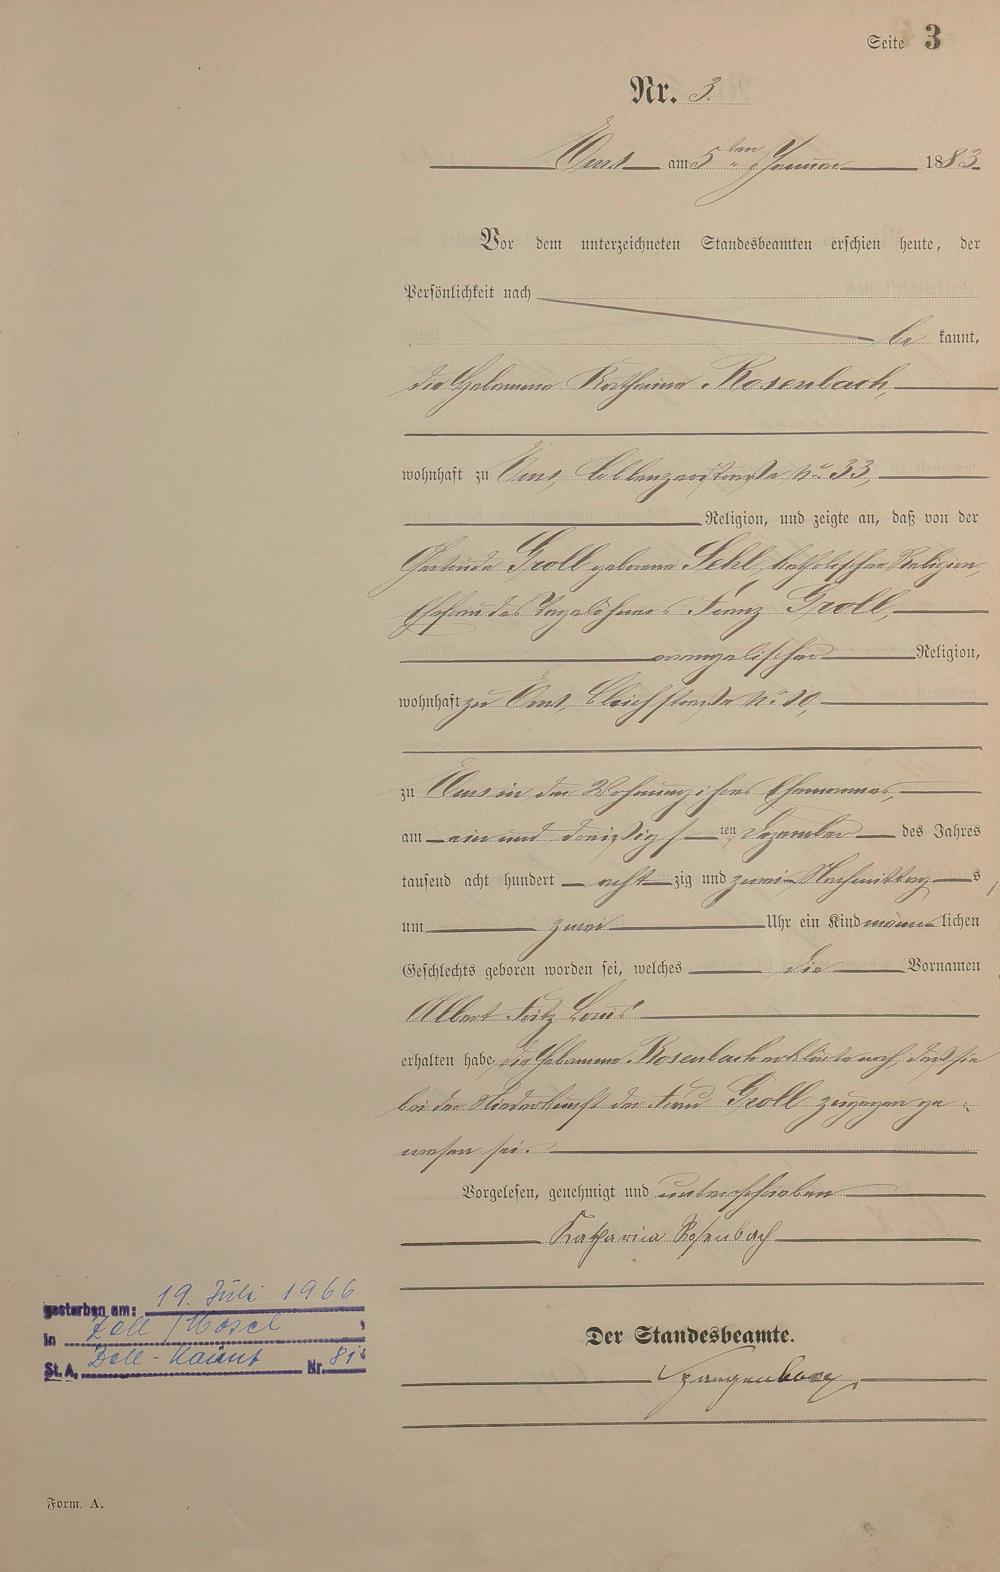 Seite 3
Nr. 3.
Ems am 5ten Januar 1883
Vor dem unterzeichneten Standesbeamten erschien heute, der
Persönlichkeit nach
be kannt,
die Hebamme Katharina Rosenbach,
wohnhaft zu Ems, Coblenzerstraße No 33,
Religion, und zeigte an, daß von der
Gertrude Groll geborene Sehl, katholischer Religion,
Ehefrau des Tagelöhners Franz Groll,
evangelischer Religion,
wohnhaft zu Ems, Bleichstraße No 10,
zu Ems in der Wohnung ihres Ehemannes,
am ein und dreißigsten Dezember des Jahres
tausend acht hundert achtzig und zwei Nachmittags
um zwei Uhr ein Kind männlichen
Geschlechts geboren worden sei, welches die Vornamen
Albert Fritz Louis
erhalten habe, die Hebamme Rosenbach erklärte noch, daß sie
bei der Niederkunft der Frau Groll zugegen ge-
wesen sei.
Vorgelesen, genehmigt und unterschrieben
Katharina Rosenbach
gestorben am: 19. Juli 1966
in Zell / Mosel
St. A. Zell - Nr.
Der Standesbeamte.
Form. A.